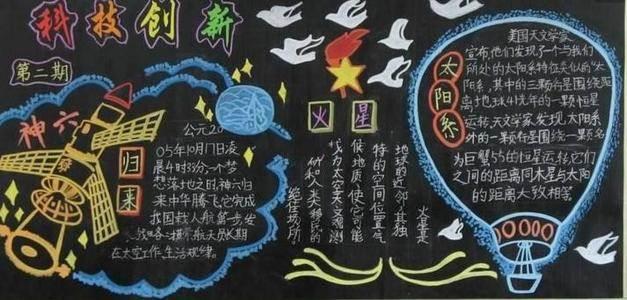 科技创新
第二期
神六
归来
公元20
05年10月17日凌
晨4时33分,一个梦
想落地之时,神六归
来中华腾飞它完成
我国载人航第一步发
航天员长期
在太空工作、生活规律。
火星
火星是
地球的近邻,其独
特的空间位置气
候地质,使它可能
成为太空天文观测
所和人类移民的
绝佳场所
太阳系
美国天文学家
宣布他们发现了一个与我们
所处的太阳系特征类似的“太
阳系,其中的三颗行星围绕距
离地球41光年的一颗恒星
运转,天文学家发现,太阳系
外的一颗行星围绕一颗名
为巨蟹55的恒星运转,它们
之间的距离同木星与太阳
的距离大致相等